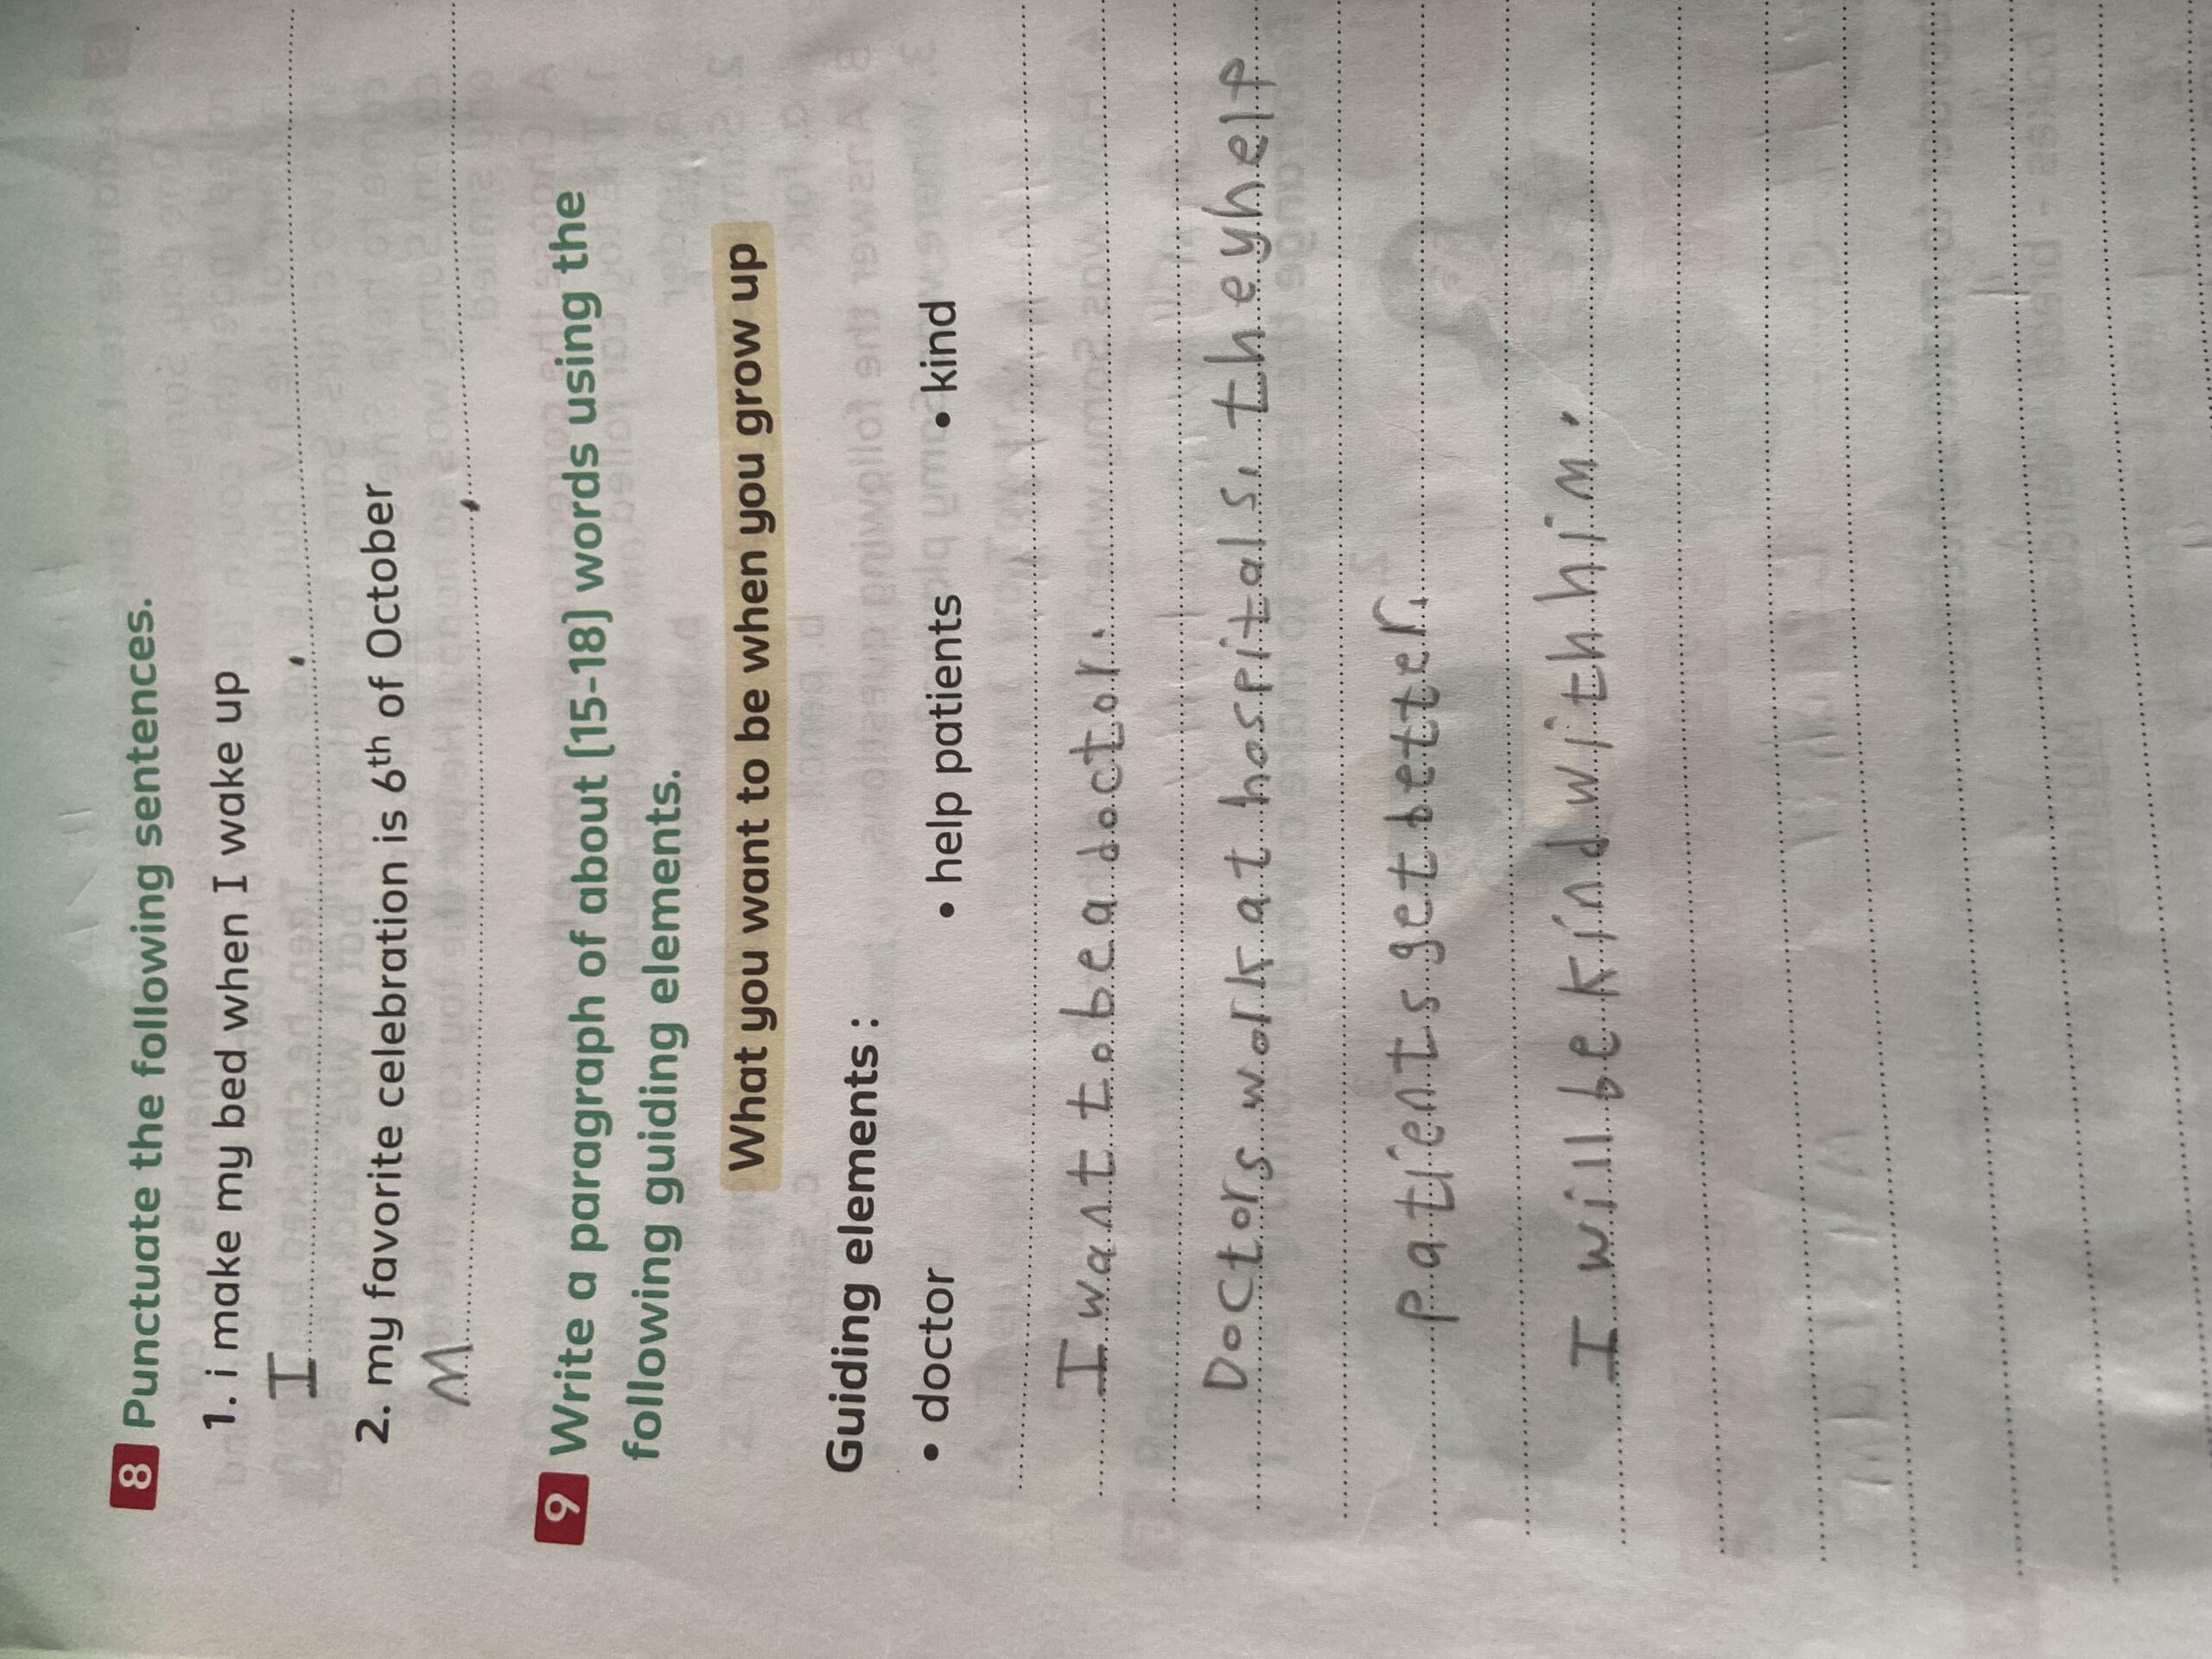 8 Punctuate the following sentences.
1. i make my bed when I wake up
I .
2. my favorite celebration is 6th of October
M .
9 Write a paragraph of about (15-18) words using the
following guiding elements.
What you want to be when you grow up
Guiding elements :
• doctor • help patients • kind
I want to be a doctor.
Doctors work at hospitals. they help
Patients get better.
I will be kind with him.